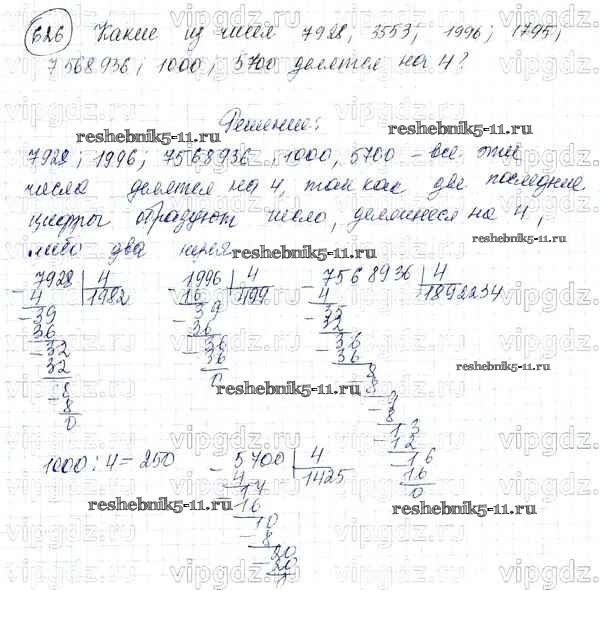 626 Какие из чисел 7928; 3553; 1996; 1795;
7568936; 1000; 5700 делятся на 4?
Решение:
reshebnik5-11.ru reshebnik5-11.ru
7928; 1996; 7568936; 1000, 5700 – все эти
числа делятся на 4, так как две последние
цифры образуют число, делящееся на 4,
либо два нуля
reshebnik5-11.ru reshebnik5-11.ru
7928 | 4 1996 | 4 7568936 | 4
4 1982 16 499 4 1892234
39 39 35
36 36 32
32 36 36
32 36 36
8 0 8
8 8
0 9
8
13
12
16
16
0
reshebnik5-11.ru reshebnik5-11.ru
1000 : 4 = 250 5700 | 4
4 1425
17
16
10
8
20
20
0
reshebnik5-11.ru reshebnik5-11.ru
vipgdz.